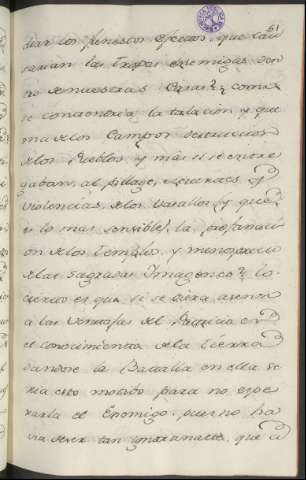 61
diar los funestos efectos, que cau
sarian las Tropas enemigas den
tro de nuestras Casas? como
se contendria la talacion, y que
ma de los Campos destruccion
de los Pueblos, y mas si se entre
gaban, al pillage, y
violencias de los Vasallos y que
es lo mas sensible, la profanaci
on de los Templos, y menosprecio
de las Sagradas Imagenes? lo
cierto es que si se diera asenso
a las ventajas del en
el conocimiento de la tierra
dandose la Batalla en ella se
ria esto motibo para no espe
rarla el Enemigo. pues no ha
via de ser tan ignorante, que a